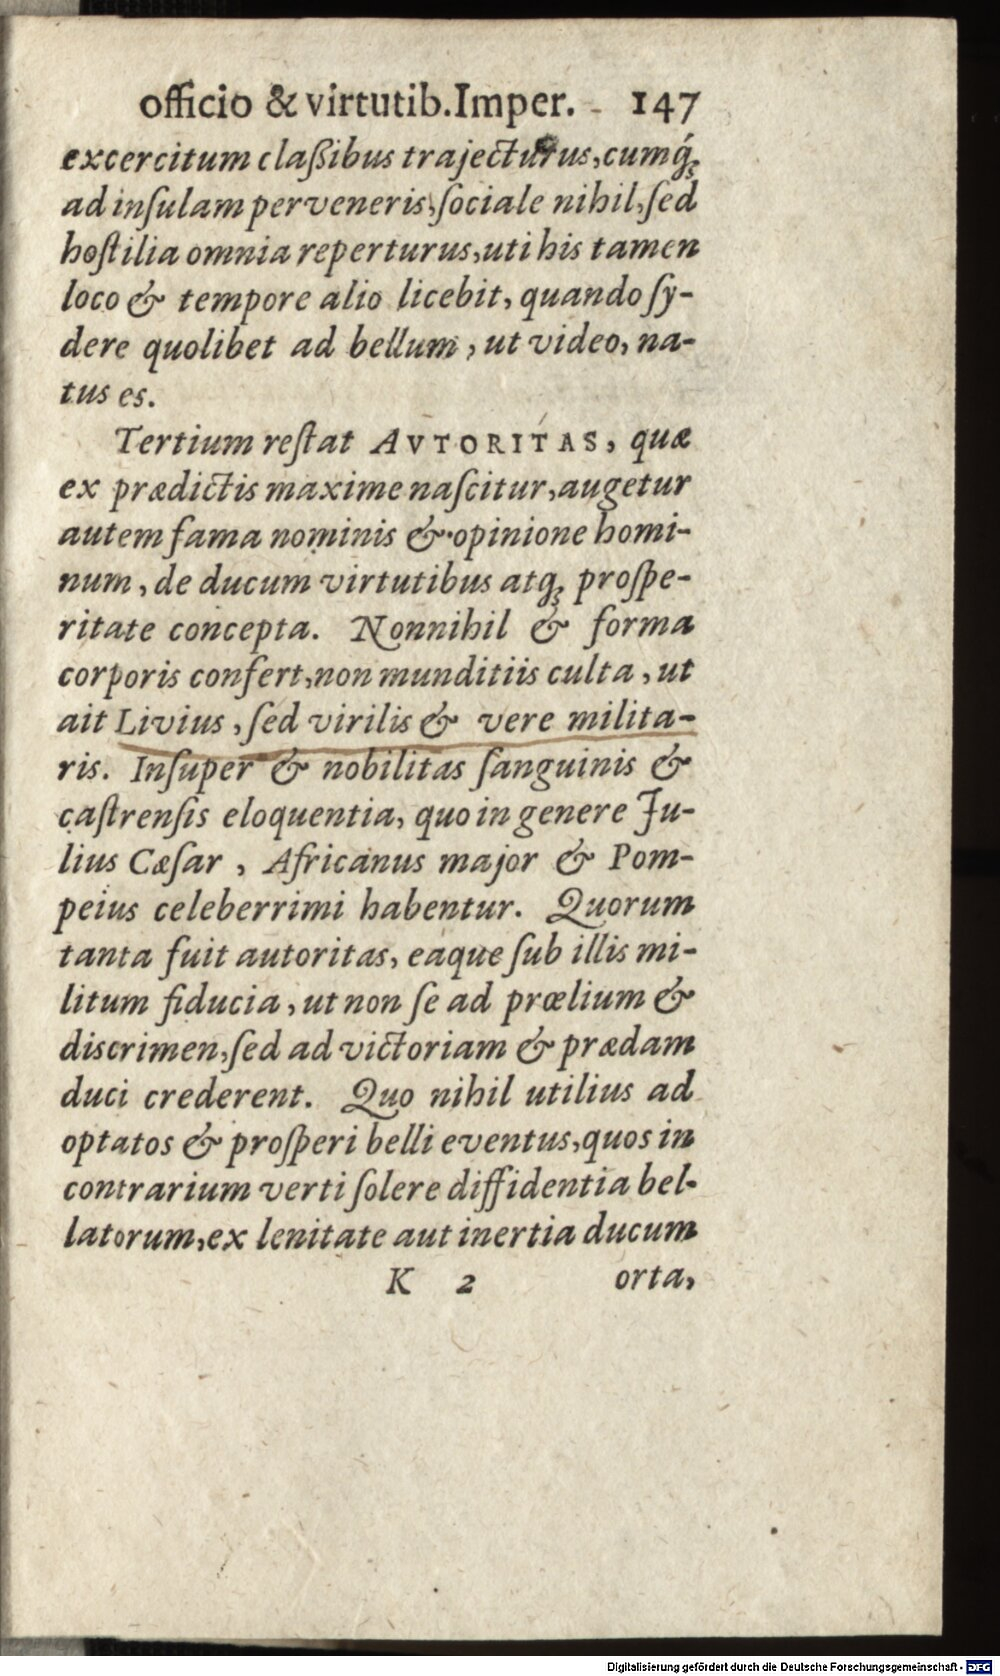 officio & virtutib. Imper. 147
excercitum claßibus trajecturus, cumq́;
ad inſulam perveneris, ſociale nihil, ſed
hoſtilia omnia reperturus, uti his tamen
loco & tempore alio licebit, quando ſy-
dere quolibet ad bellum, ut video, na-
tus es.
Tertium reſtat AVTORITAS, quæ
ex prædictis maxime naſcitur, augetur
autem fama nominis & opinione homi-
num, de ducum virtutibus atq; proſpe-
ritate concepta. Nonnihil & forma
corporis confert, non munditiis culta, ut
ait Livius, ſed virilis & vere milita-
ris. Inſuper & nobilitas ſanguinis &
caſtrenſis eloquentia, quo in genere Ju-
lius Cæſar, Africanus major & Pom-
peius celeberrimi habentur. Quorum
tanta fuit autoritas, eaque ſub illis mi-
litum fiducia, ut non ſe ad prœlium &
discrimen, ſed ad victoriam & prædam
duci crederent. Quo nihil utilius ad
optatos & proſperi belli eventus, quos in
contrarium verti ſolere diffidentia bel-
latorum, ex lenitate aut inertia ducum
K 2 orta,
Digitalisierung gefördert durch die Deutsche Forschungsgemeinschaft - DFG